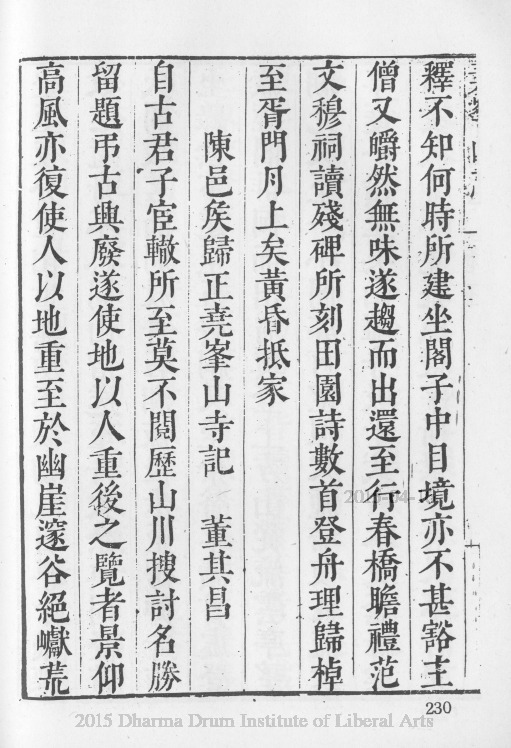 釋不知何時所建坐閣子中目境亦不甚豁主
僧又皭然無味遂趨而出還至行春橋瞻禮范
文穆祠讀殘碑所刻田園詩數首登舟理歸棹
至胥門月上矣黃昏抵家
陳邑矦歸正堯峯山寺記　董其昌
自古君子宦轍所至莫不閱歷山川搜討名勝
留題弔古興廢遂使地以人重後之覽者景仰
高風亦復使人以地重至於幽崖邃谷絕巘荒
230
2015 Dharma Drum Institute of Liberal Arts